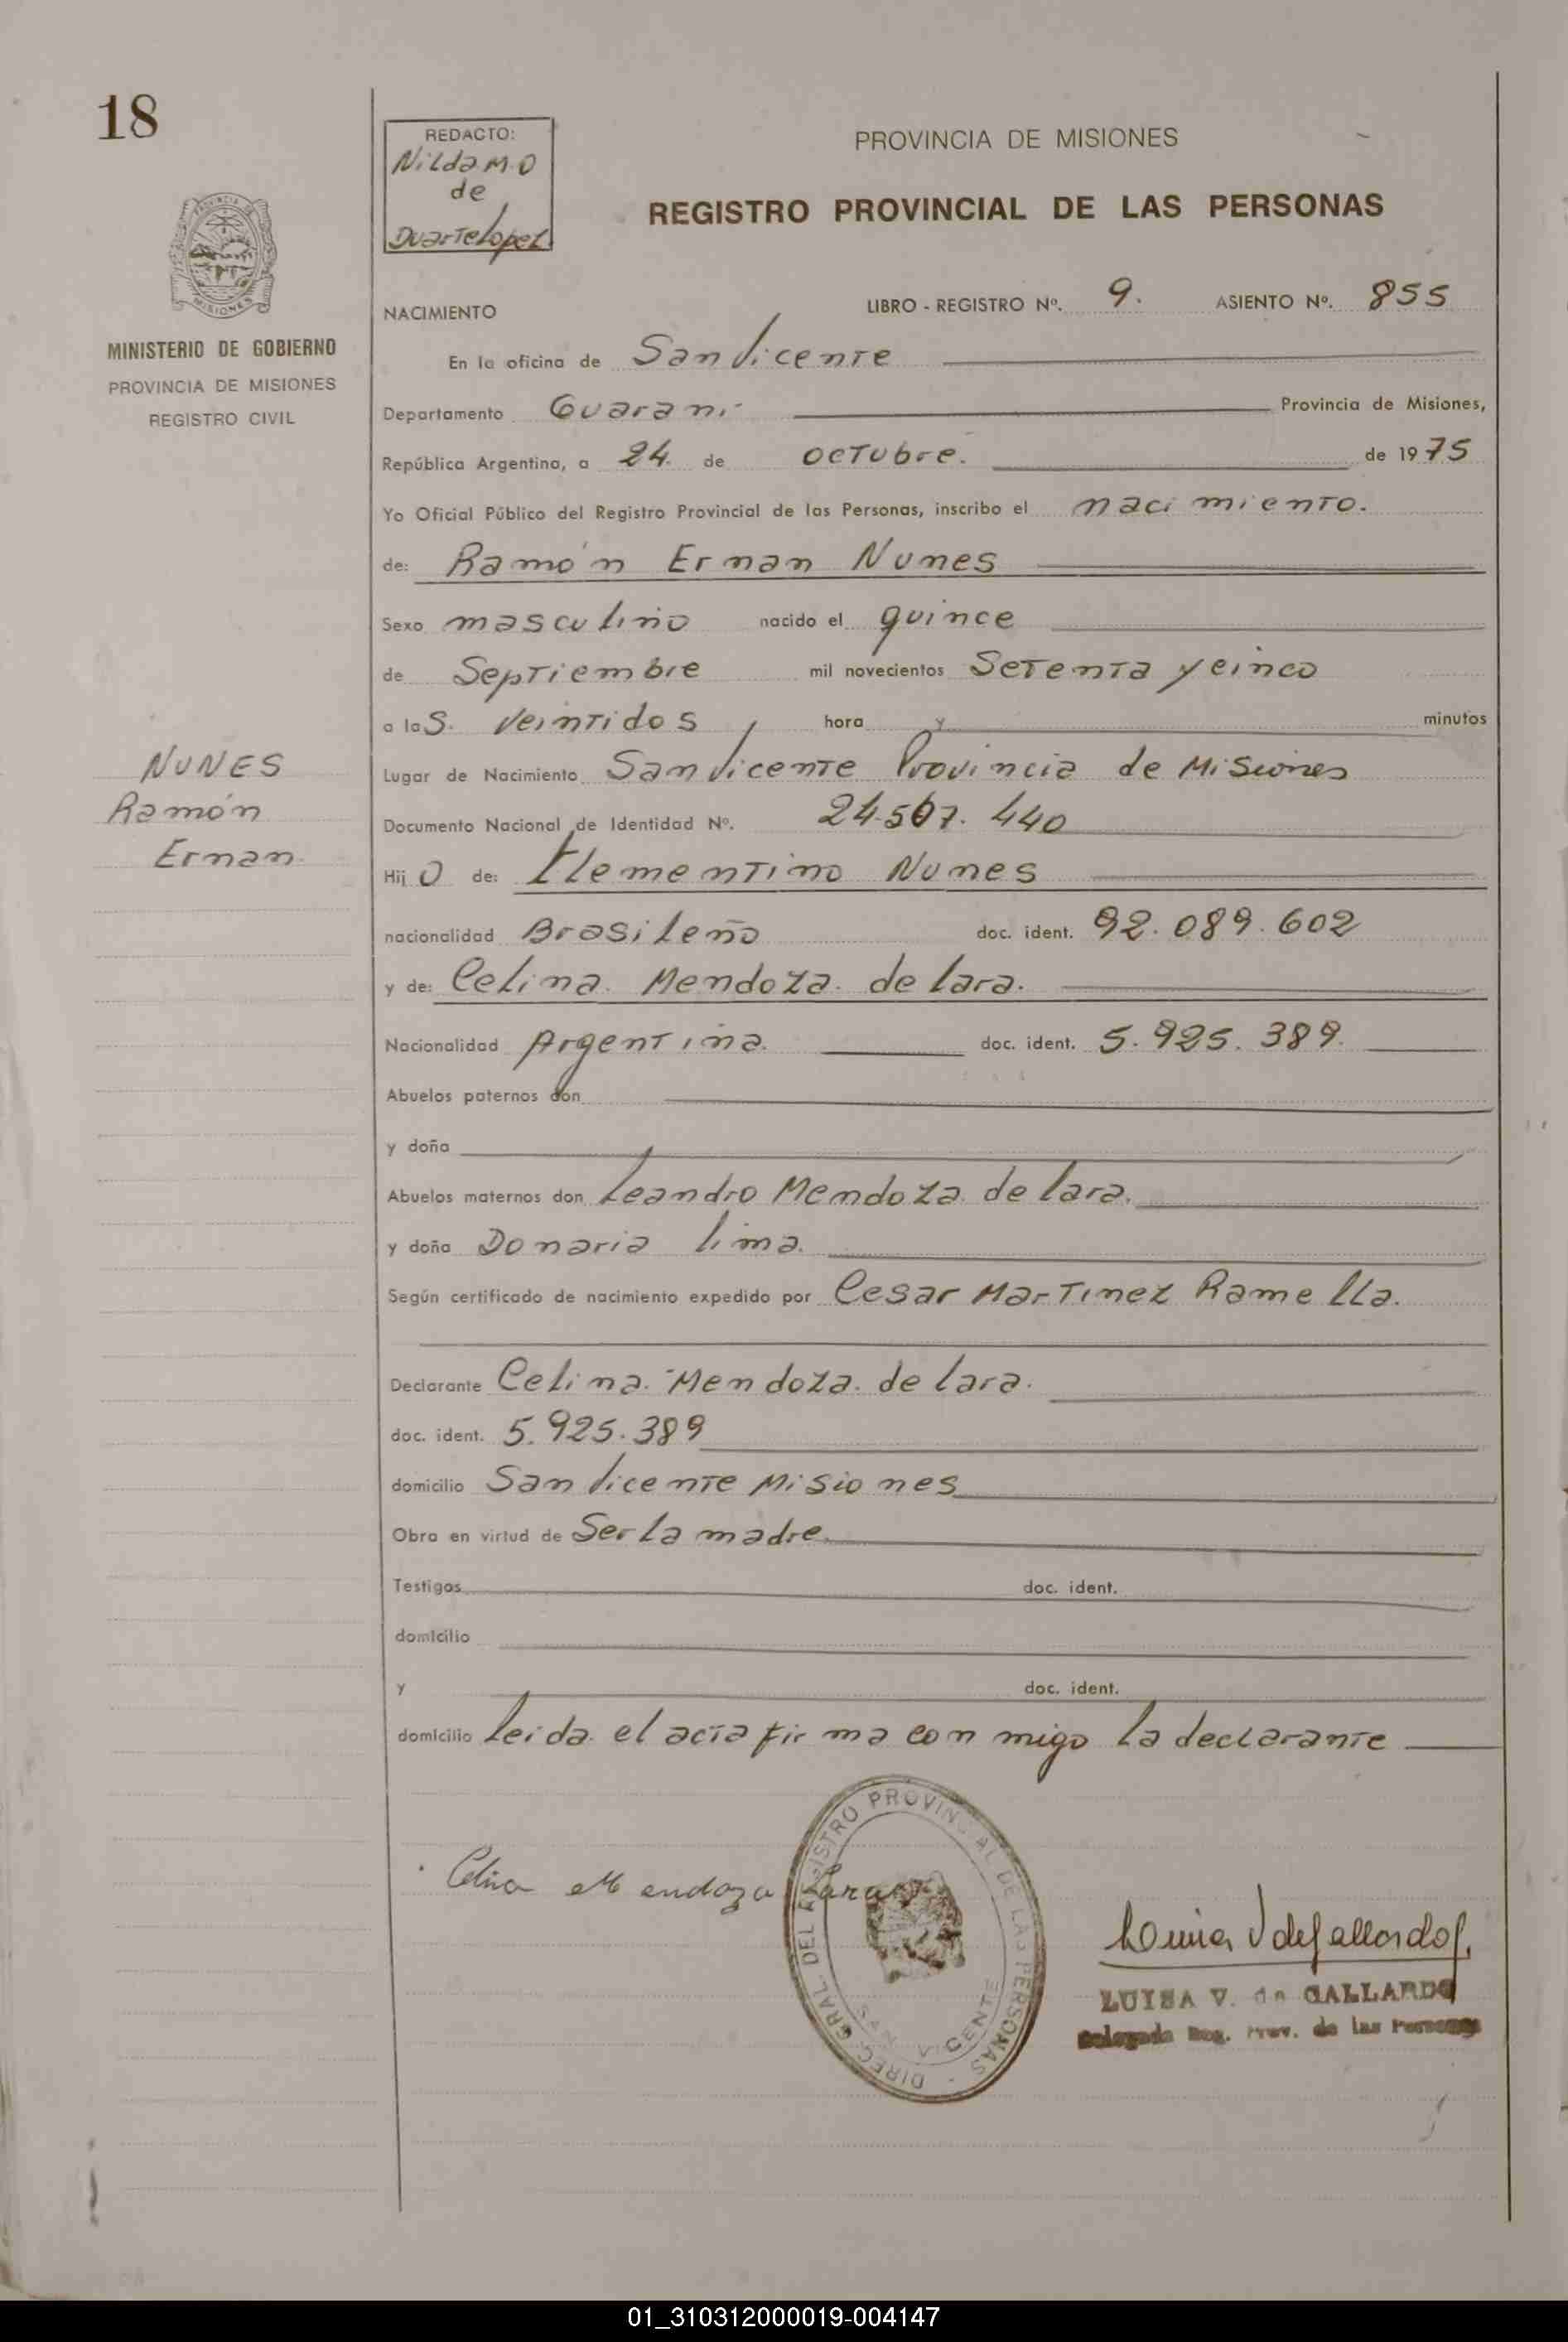 18
REDACTO:
Nilda M. O
de
Duarte Lopez
PROVINCIA DE MISIONES
REGISTRO PROVINCIAL DE LAS PERSONAS
MISIONES
MINISTERIO DE GOBIERNO
PROVINCIA DE MISIONES
REGISTRO CIVIL
NACIMIENTO LIBRO - REGISTRO Nº. 9. ASIENTO Nº. 855
En la oficina de San Vicente
Departamento Guarani Provincia de Misiones,
República Argentina, a 24. de octubre. de 1975
Yo Oficial Público del Registro Provincial de las Personas, inscribo el nacimiento.
de: Ramón Ernan Nunes
Sexo masculino nacido el quince
de Septiembre mil novecientos Setenta y cinco
a las. veintidos hora y minutos
Lugar de Nacimiento San Vicente Provincia de Misiones
NUNES
Ramón
Ernan.
Documento Nacional de Identidad Nº. 24.567.440
Hij O de: Clementino Nunes
nacionalidad Brasileño doc. ident. 92.089.602
y de: Celina. Mendoza. de lara.
Nacionalidad Argentina. doc. ident. 5.925.389.
Abuelos paternos don
y doña
Abuelos maternos don Leandro Mendoza de lara.
y doña Donaria lima.
Según certificado de nacimiento expedido por Cesar Martinez Ramella.
Declarante Celina. Mendoza. de lara.
doc. ident. 5.925.389
domicilio San Vicente Misiones
Obra en virtud de Ser la madre.
Testigos doc. ident.
domicilio
y doc. ident.
domicilio leida el acta firma con migo la declarante
Celina Mendoza Lara
DIREC. GRAL. DEL REGISTRO PROVINCIAL DE LAS PERSONAS -
SAN VICENTE
Luisa V de Gallardo
LUISA V. de GALLARDO
Delegada Reg. Prov. de las Personas
01_310312000019-004147